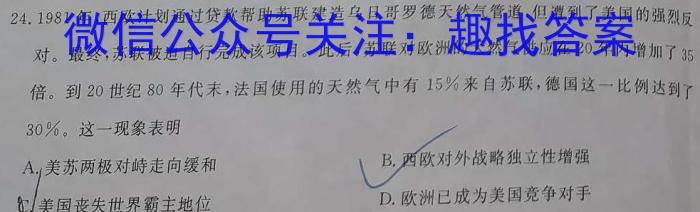 24. 1981年,西欧计划通过贷款帮助苏联建造乌日哥罗德天然气管道,但遭到了美国的强烈反
微信公众号关注：趣找答案
对。最终,苏联被迫自行完成该项目。此后,苏联对欧洲的天然气供应在20年内增加了35
倍。到20世纪80年代末,法国使用的天然气中有15%来自苏联,德国这一比例达到了
30%。这一现象表明
A. 美苏两极对峙走向缓和
B. 西欧对外战略独立性增强
C. 美国丧失世界霸主地位
D. 欧洲已成为美国竞争对手